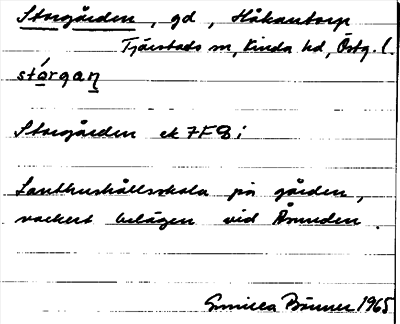 Storgården, gd, Håkantorp
Tjärstads sn, Kinda hd, Östg. l.
stórgaɳ
Storgården ek 7F8i
Lanthushållsskola på gården,
vackert belägen vid Åsunden.
Gunilla 1965